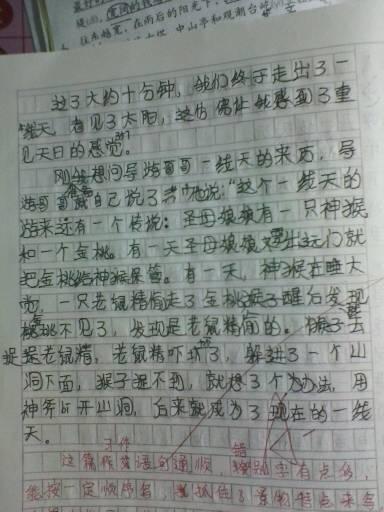 在雨后的阳光下
中山亭和观潮台
过了大约十分钟，我们终于走出了一
线天，看见了太阳，这仿佛让我感到了重
见天日的感觉。
刚想问导游哥哥一线天的来历，导
游哥哥就自己说了："这个一线天的
游来还有一个传说：圣母娘娘有一只神猴
和一个金桃。有一天圣母娘娘要出远门就
把金桃给神猴保管。有一天，神猴在睡大
觉，一只老鼠精偷走了金桃猴子醒后发现
桃不见了，发现是老鼠精偷的。猴子去
捉老鼠精，老鼠精吓坏了，躲进了一个山
洞下面，猴子捉不到，就想了个办法，用
神斧劈开山洞，后来就成为了现在的一线
天。
这篇习作语句通顺，错别字有点多，
能按一定顺序写，抓住了景物特点来写